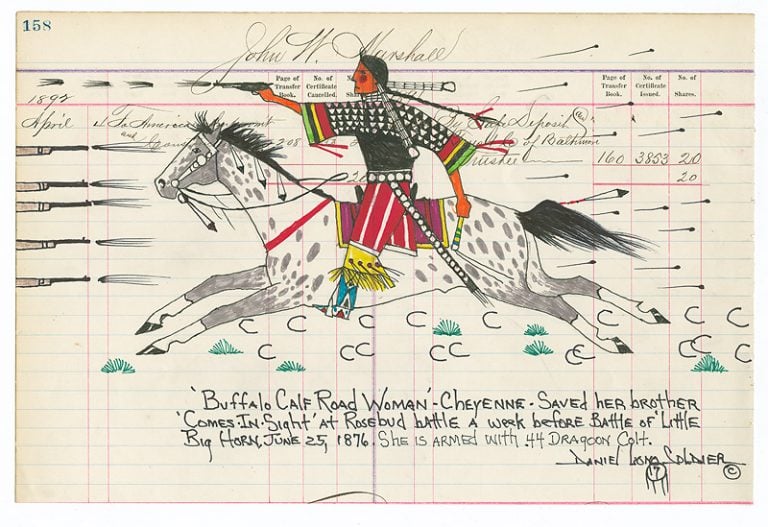 158
John W. Marshall
Page of Transfer Book.
No. of Certificate Cancelled.
No. Shares
Page of Transfer Book.
No. of Certificate Issued.
No. of Shares.
1892
April
To America
Deposit
and
208
of Baltimore
160 3853 20
20
'Buffalo Calf Road Woman'-Cheyenne. Saved her brother
'Comes-In-Sight' at Rosebud battle a week before Battle of 'Little
Big Horn, June 25, 1876. She is armed with .44 Dragoon Colt.
Daniel Long Soldier
17 ©